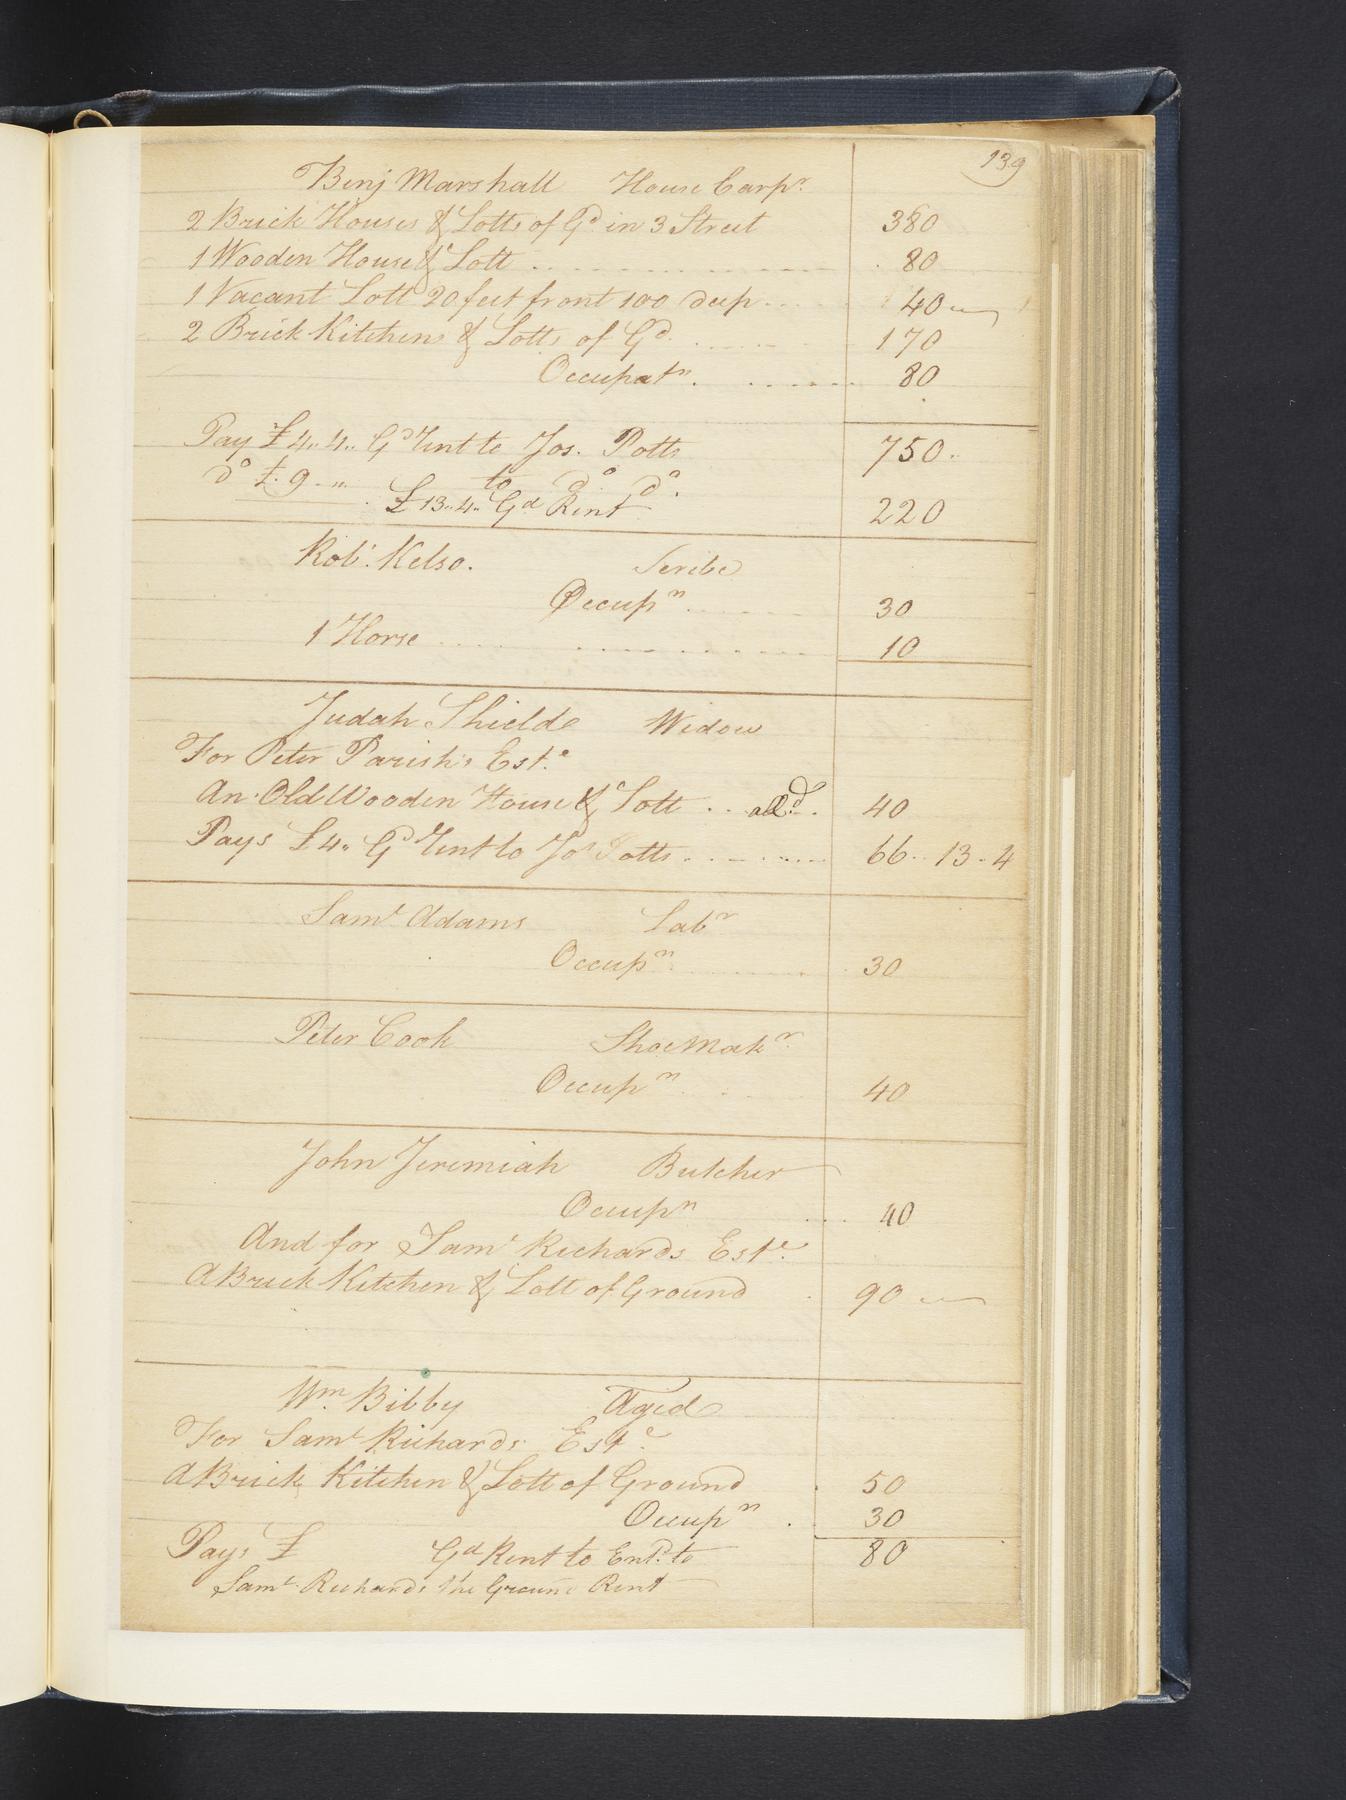 139
Benj Marshall House Carpr.
2 Brick Houses & Lotts of Gd in 3 Street 380
1 Wooden House & Lott 80
1 Vacant Lott 20 feet front 100 deep 40
2 Brick Kitchens & Lotts of Gd 170
Occupatn. 80
Pay £ 4.. 4.. Gd Rent to Jos. Potts 750.
do £. 9 - " to do do.
£ 13..4.. Gd Rent 220
Robt. Kelso. Scribe
Occupn. 30
1 Horse 10
Judah Shields Widow
For Peter Parish's Este.
An Old Wooden House & Lott 40
Pays £4.. Gd Rent to Jos Potts 66..13-4
Saml Adams Labr
Occupn 30
Peter Cook ShoeMakr.
Occupn 40
John Jeremiah Butcher
Occupn 40
And for Saml Richards Este.
A Brick Kitchen & Lott of Ground 90
Wm. Bibby Aged
For Saml Richards Este.
A Brick Kitchen & Lott of Ground 50
Occupn. 30
Pays £ Gd Rent to Entd. to 80
Saml. Richards the Ground Rent